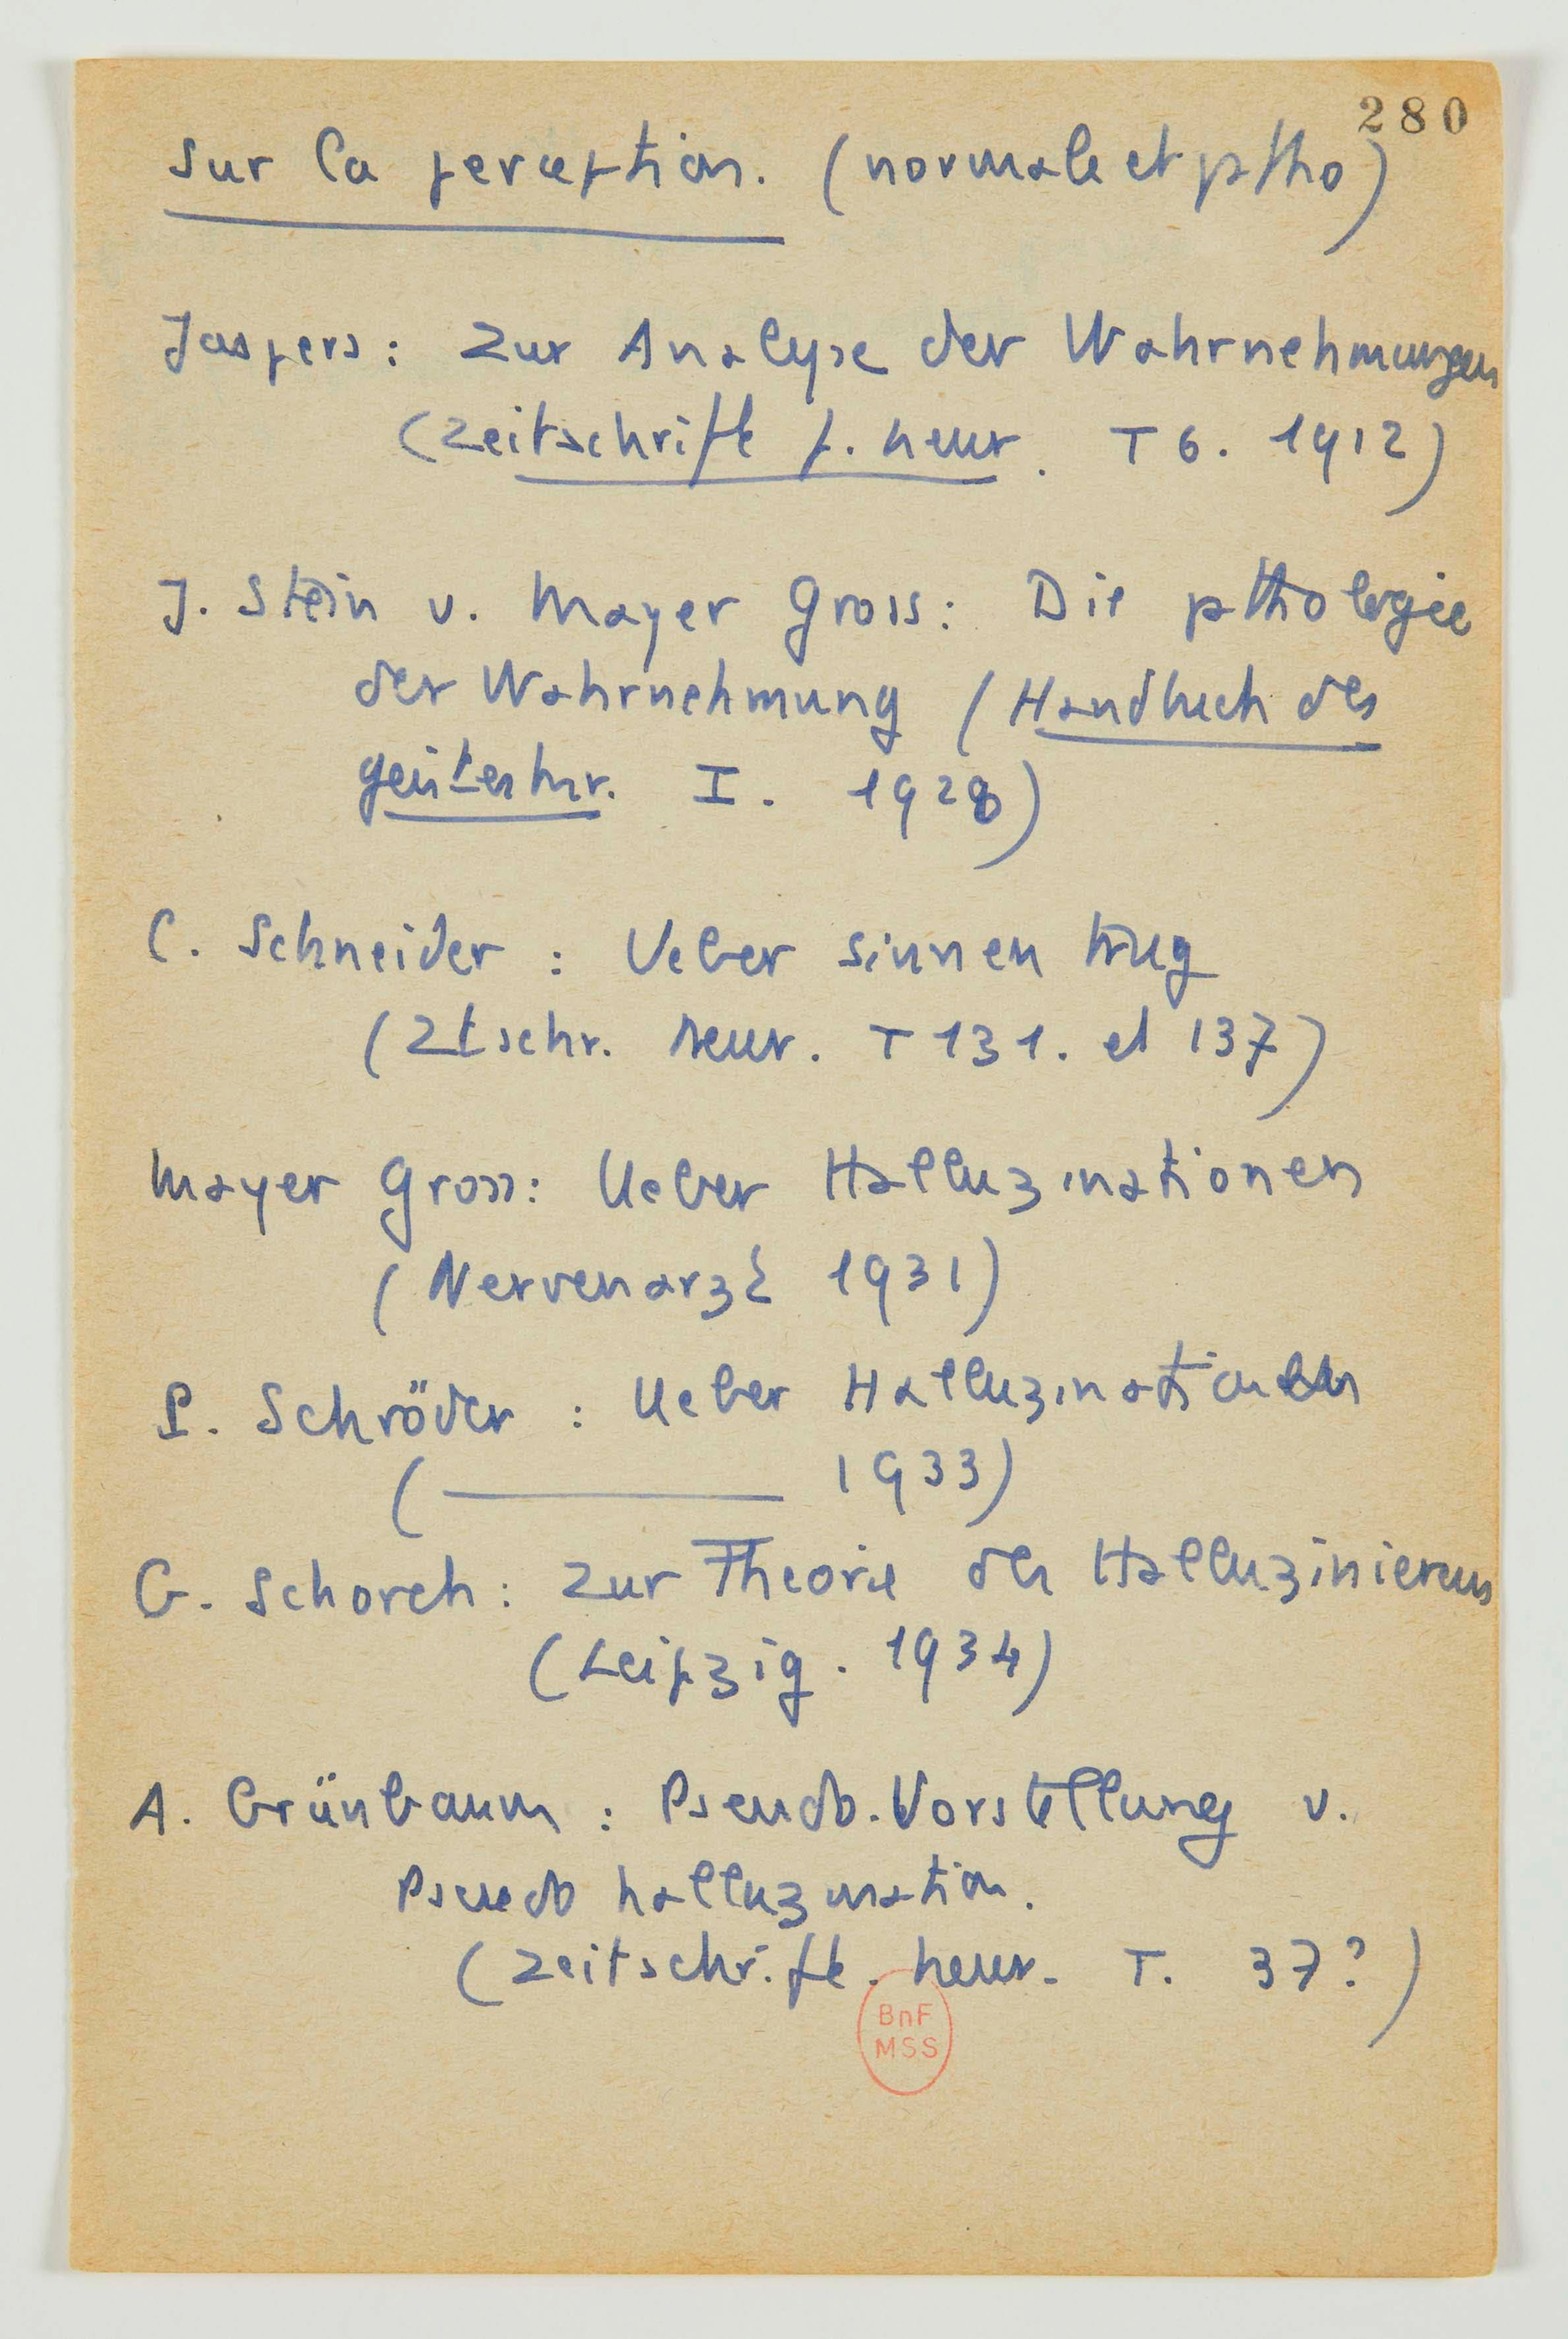 280
Sur la perception. (normale et ptho)
Jaspers : Zur Analyse der Wahrnehmungen
(Zeitschrift f. neur. T 6. 1912)
J. Stein v. Mayer Gross : Die pthologie
der Wahrnehmung (Handbuch des
geisteskr. I. 1928)
C. Schneider : Ueber Sinnentrug
(Ztschr. neur. T 131. et 137)
Mayer Gross : Ueber Halluzinationen
(Nervenarzt 1931)
P. Schröder : Ueber Halluzinationen
(——— 1933)
G. Schorch : Zur Theorie des Halluzinierens
(Leipzig. 1934)
A. Grünbaum : Pseudo-Vorstellung v.
Pseudo halluzination.
(Zeitschr.ft. neur. T. 37?)
BnF
MSS